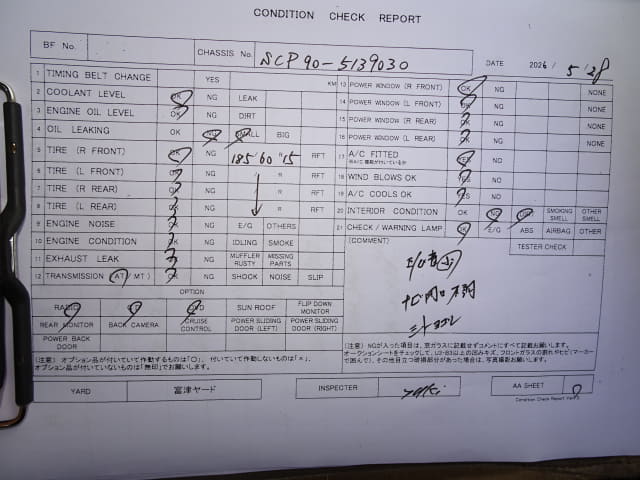 CONDITION CHECK REPORT
BF No.
CHASSIS No. SCP90-5139030
DATE 2026 / 5 / 28
1 TIMING BELT CHANGE YES KM
2 COOLANT LEVEL OK NG LEAK
3 ENGINE OIL LEVEL OK NG DIRT
4 OIL LEAKING OK NG SMALL BIG
5 TIRE (R FRONT) OK NG 185/60 R 15 RFT
6 TIRE (L FRONT) OK NG R RFT
7 TIRE (R REAR) OK NG R RFT
8 TIRE (L REAR) OK NG R RFT
9 ENGINE NOISE OK NG E/G OTHERS
10 ENGINE CONDITION OK NG IDLING SMOKE
11 EXHAUST LEAK OK NG MUFFLER RUSTY MISSING PARTS
12 TRANSMISSION (AT / MT) OK NG SHOCK NOISE SLIP
13 POWER WINDOW (R FRONT) OK NG NONE
14 POWER WINDOW (L FRONT) OK NG NONE
15 POWER WINDOW (R REAR) OK NG NONE
16 POWER WINDOW (L REAR) OK NG NONE
17 A/C FITTED YES NG
18 WIND BLOWS OK YES NG
19 A/C COOLS OK YES NG
20 INTERIOR CONDITION OK NG SMOKING SMELL OTHER SMELL
21 CHECK / WARNING LAMP OK E/G ABS AIRBAG OTHER
(COMMENT) TESTER CHECK
OPTION
RADIO CD DVD SUN ROOF FLIP DOWN MONITOR
REAR MONITOR BACK CAMERA CRUISE CONTROL POWER SLIDING DOOR (LEFT) POWER SLIDING DOOR (RIGHT)
POWER BACK DOOR
(注意) オプション品が付いていて作動するものは「○」、付いていて作動しないものは「×」、
オプション品が付いていないものは「無印」でお願いします。
(注意) NGが入った項目は、窓ガラスに記載せずコメントにすべて記載お願いします。
オークションシートをチェックして、U3・B3以上の凹みキズ、フロントガラスの割れやヒビ(マーカー
で囲んで)、その他目立つ破損部分があった場合は、写真撮影お願いします。
YARD 富津ヤード INSPECTER AA SHEET
Condition Check Report